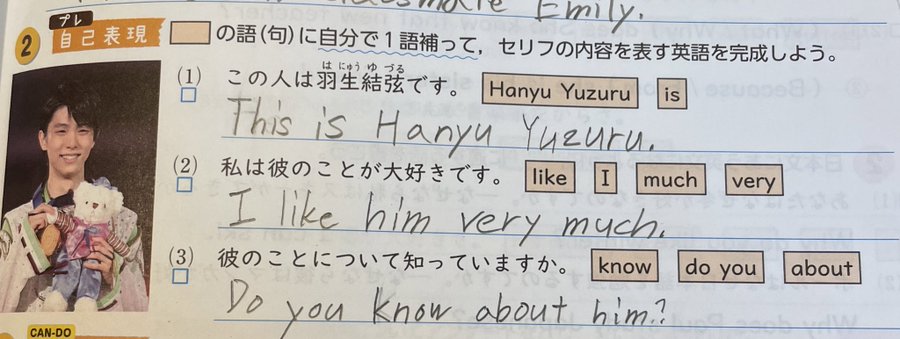 Emily.
2 プレ 自己表現 の語(句)に自分で1語補って，セリフの内容を表す英語を完成しよう。
(1) この人は羽生結弦です。 Hanyu Yuzuru is
This is Hanyu Yuzuru.
(2) 私は彼のことが大好きです。 like I much very
I like him very much.
(3) 彼のことについて知っていますか。 know do you about
Do you know about him?
CAN-DO